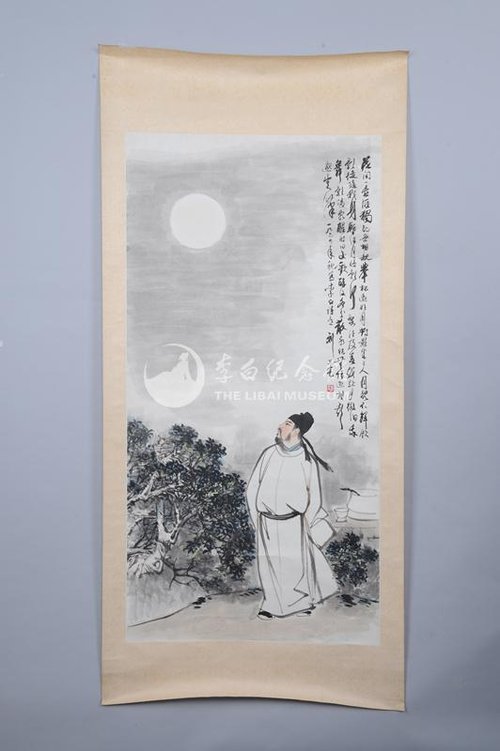 花间一壶酒独酌无相亲举杯邀明月对影成三人月既不解饮
影徒随我身暂伴月将影行乐须及春我歌月徘徊我
舞影零乱醒时同交欢醉后各分散永结无情游相期
邈云汉 李白诗意 刘
李白纪念馆
THE LIBAI MUSEUM